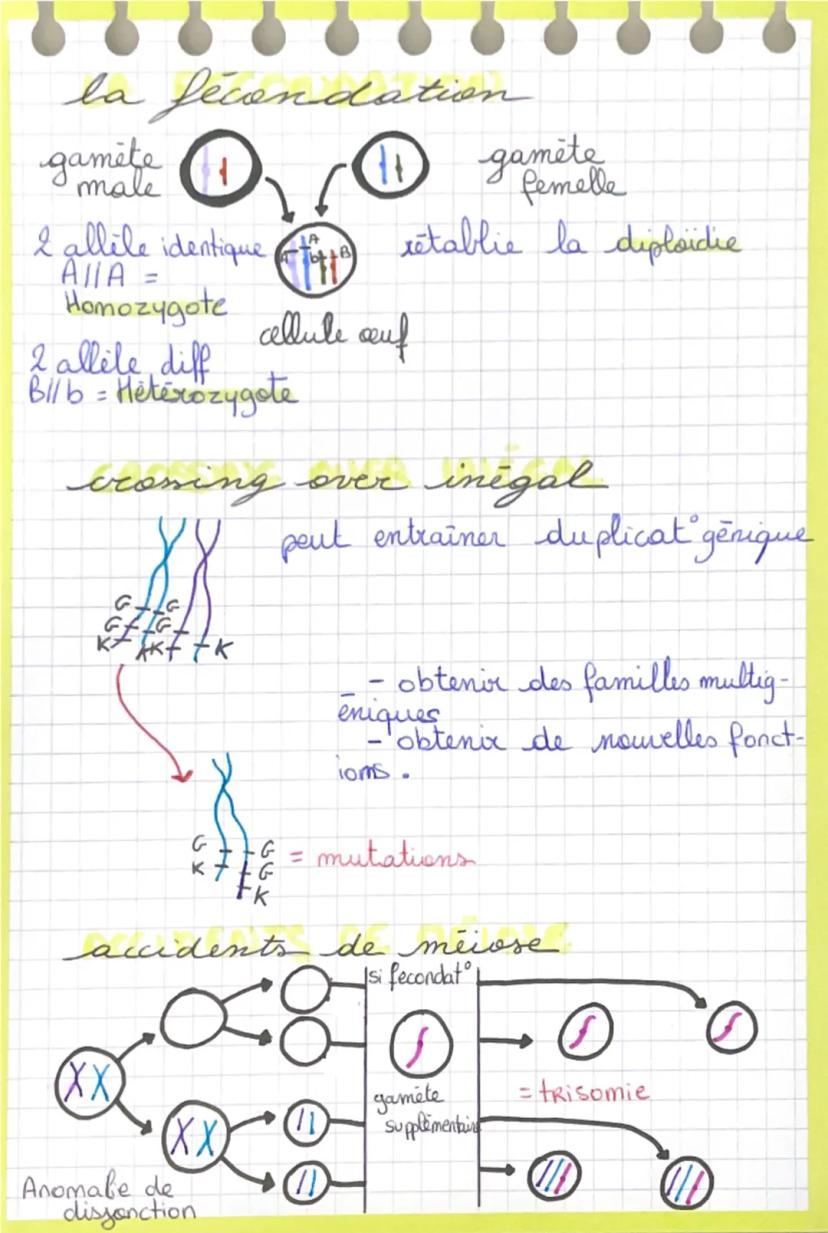 la fécondation
gamète
male
gamète
femelle
2 allèle identique
A//A =
Homozygote
A
A
b
B
rétablie la diploïdie
cellule œuf
2 allèle diff
B//b = Hétérozygote
crossing over inégal
peut entraîner duplicat° génique
G G
G G
K K K
- obtenir des familles multig-
éniques
- obtenir de nouvelles fonct-
ions.
G G
K G
K
= mutations
accidents de méiose
si fecondat°
gamète
supplémentaire
= trisomie
Anomalie de
disjonction